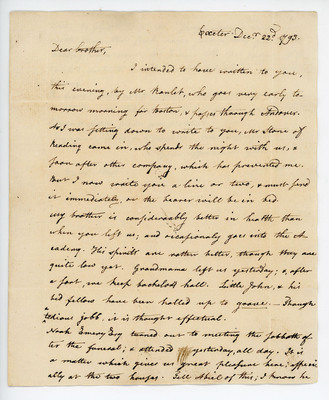 Exeter Decr. 22d. 1793.
Dear brother,
I intended to have written to you,
this evening, by Mr Ranlet, who goes very early to-
morrow morning for Boston, & passes through Andover.
As I was sitting down to write to you, Mr Stone of
Reading came in, who spends the night with us, &
soon after other company, which has prevented me.
But I now write you a line or two, & must send
it immediately, or the bearer will be in bed
my brother is considerably better in health than
when you left us, and occasionaly goes into the A-
cademy. His spirits are rather better, though they are
quite low yet. Grandmama left us yesterday; & after
a sort, we keep bachelors hall. Little John, & his
bed fellow have been
tedious jobb, it is thought effectual.
Noah Emery Esq turned out to meeting the sabbath af
ter the funeral; & attended yesterday, all day. It is
a matter which gives us great pleasure here; especi
ally at the two houses. Tell Abiel of this; I know he